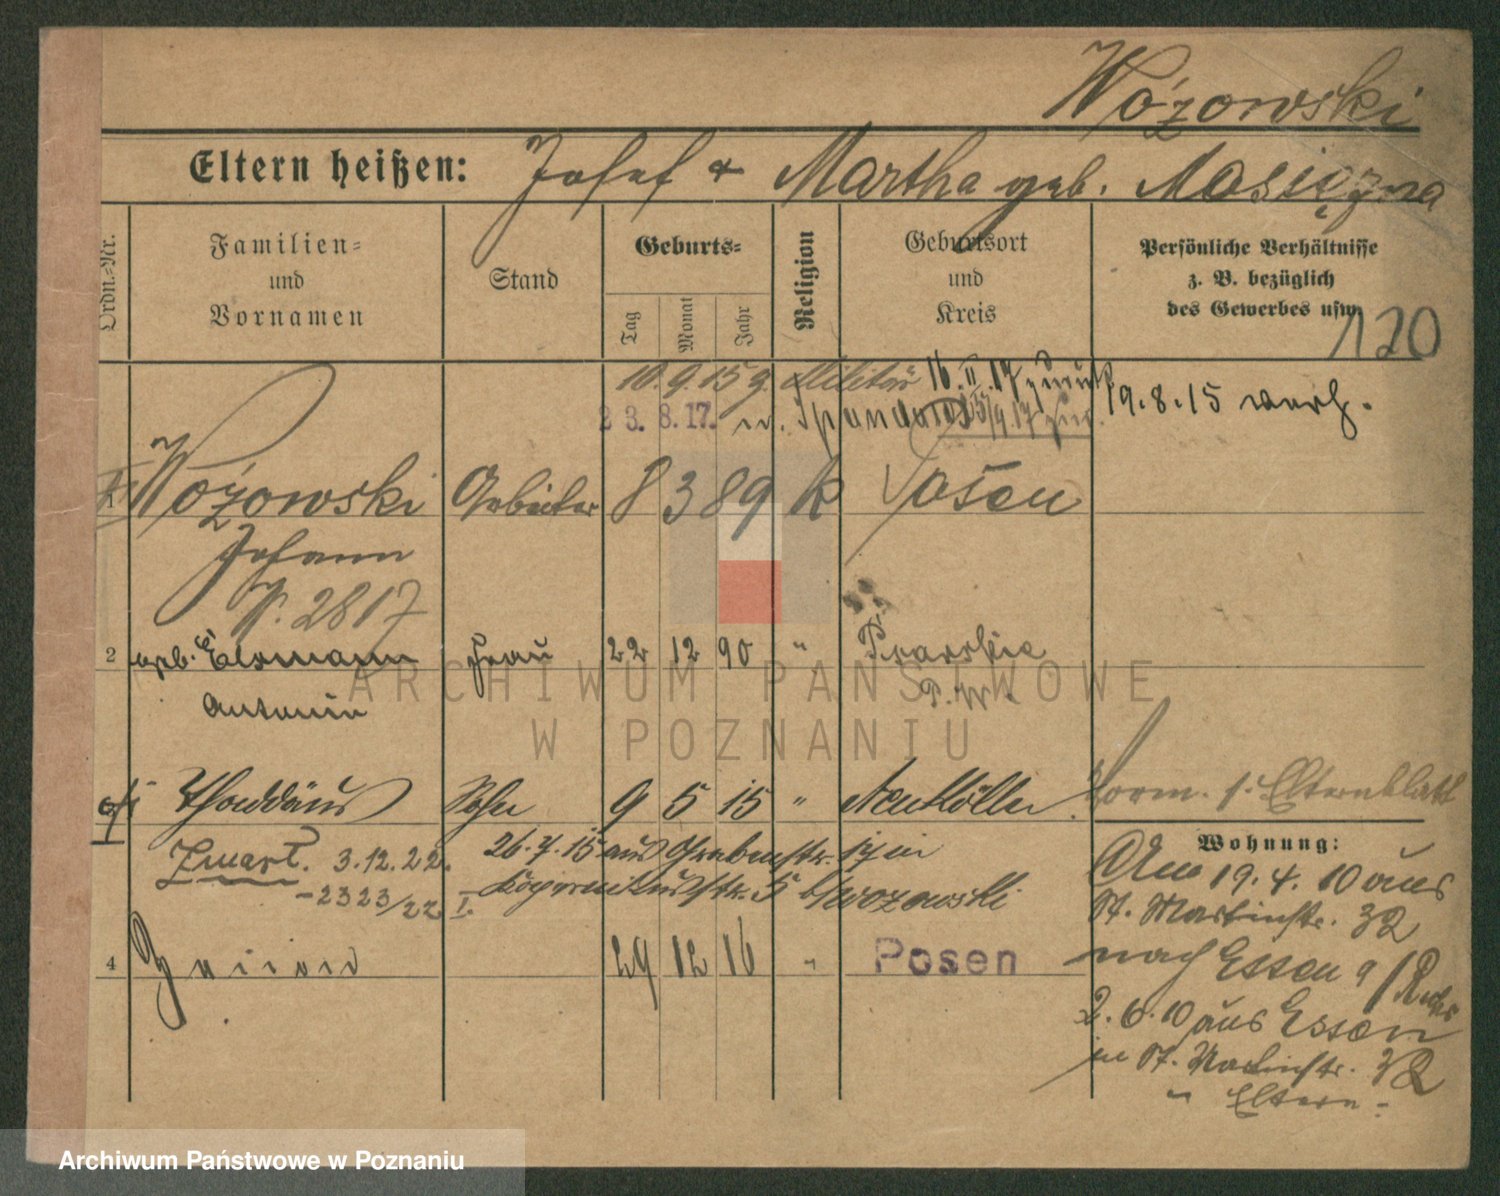 Wózowski
Eltern heißen: Josef + Martha geb. Masiczna
Ordn.-Nr.
Familien- und Vornamen
Stand
Geburts-
Tag
Monat
Jahr
Religion
Geburtsort und Kreis
Persönliche Verhältnisse
z. B. bezüglich
des Gewerbes usw.
120
10.9.15 z. Militär 16.II.17 zurück
23.8.17. n. Spandau 15/9.17 zur.
19.8.15 verh.
1 Wózowski Arbeiter 8 3 89 k Posen
Johann
P. 2817
2 geb. Ehrmann Frau 22 12 90 " Psarskie
Antonie P. W.
Thaddäus Sohn 9 5 15 " Neukölln
Vorm. s. Elternblatt
Zmarł. 3.12.22.
-2323/22 I.
26.7.15 aus Grabenstr.
Kopernikusstr. 5 b/Wozowski
4 29 12 16 " Posen
Wohnung:
Am 19.4.10 aus
St. Martinstr. 32
nach Essen a/Ruhr
2.6.10 aus Essen
in St. Martinstr. 32
Eltern -
ARCHIWUM PAŃSTWOWE
W POZNANIU
Archiwum Państwowe w Poznaniu